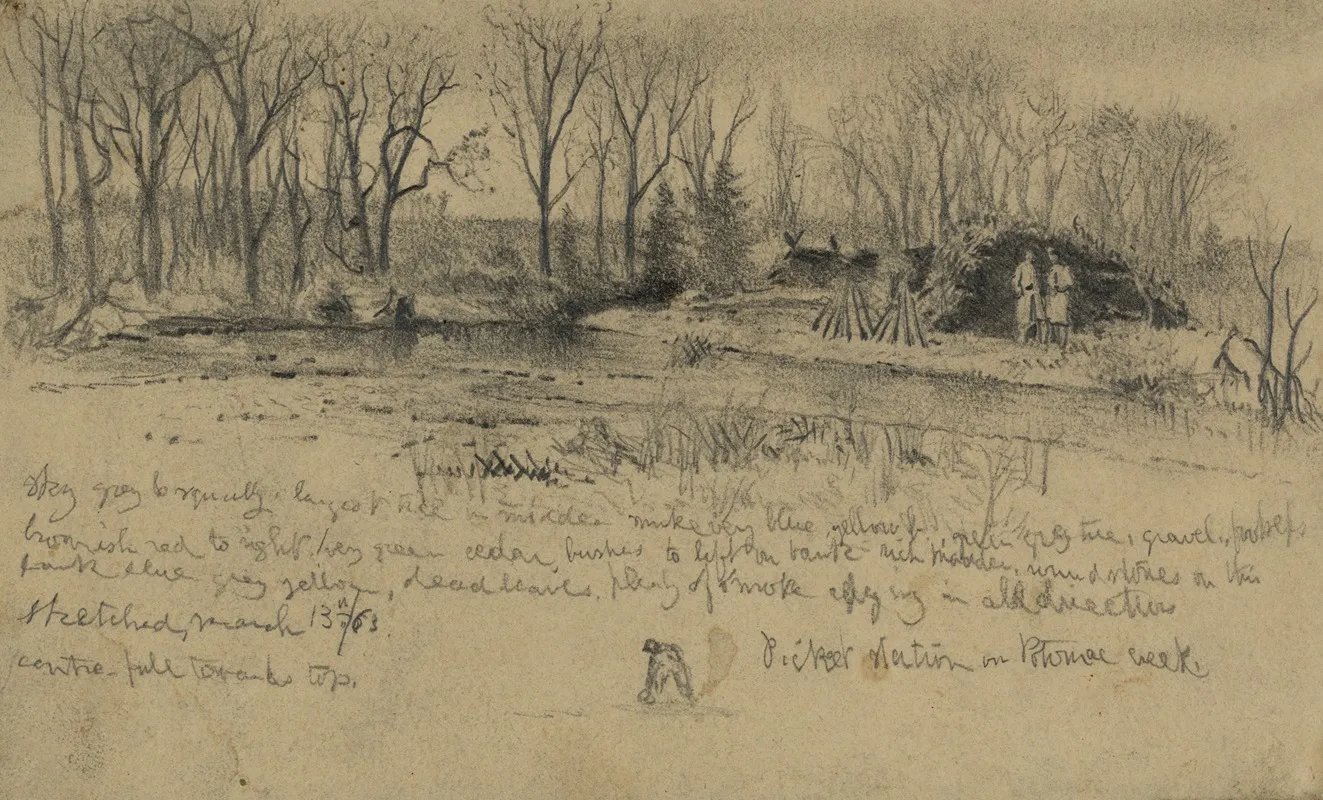 Sky grey & squally. largest tree in middle very blue, yellow green grey tree, gravel,
brownish red to right. very green cedar bushes to left on bank rich madder, round stones on this
bank blue grey yellow, dead leaves. plenty of smoke in all directions
Sketched, march 13th/63.
centre. full towards top.
Picket station on Potomac creek.